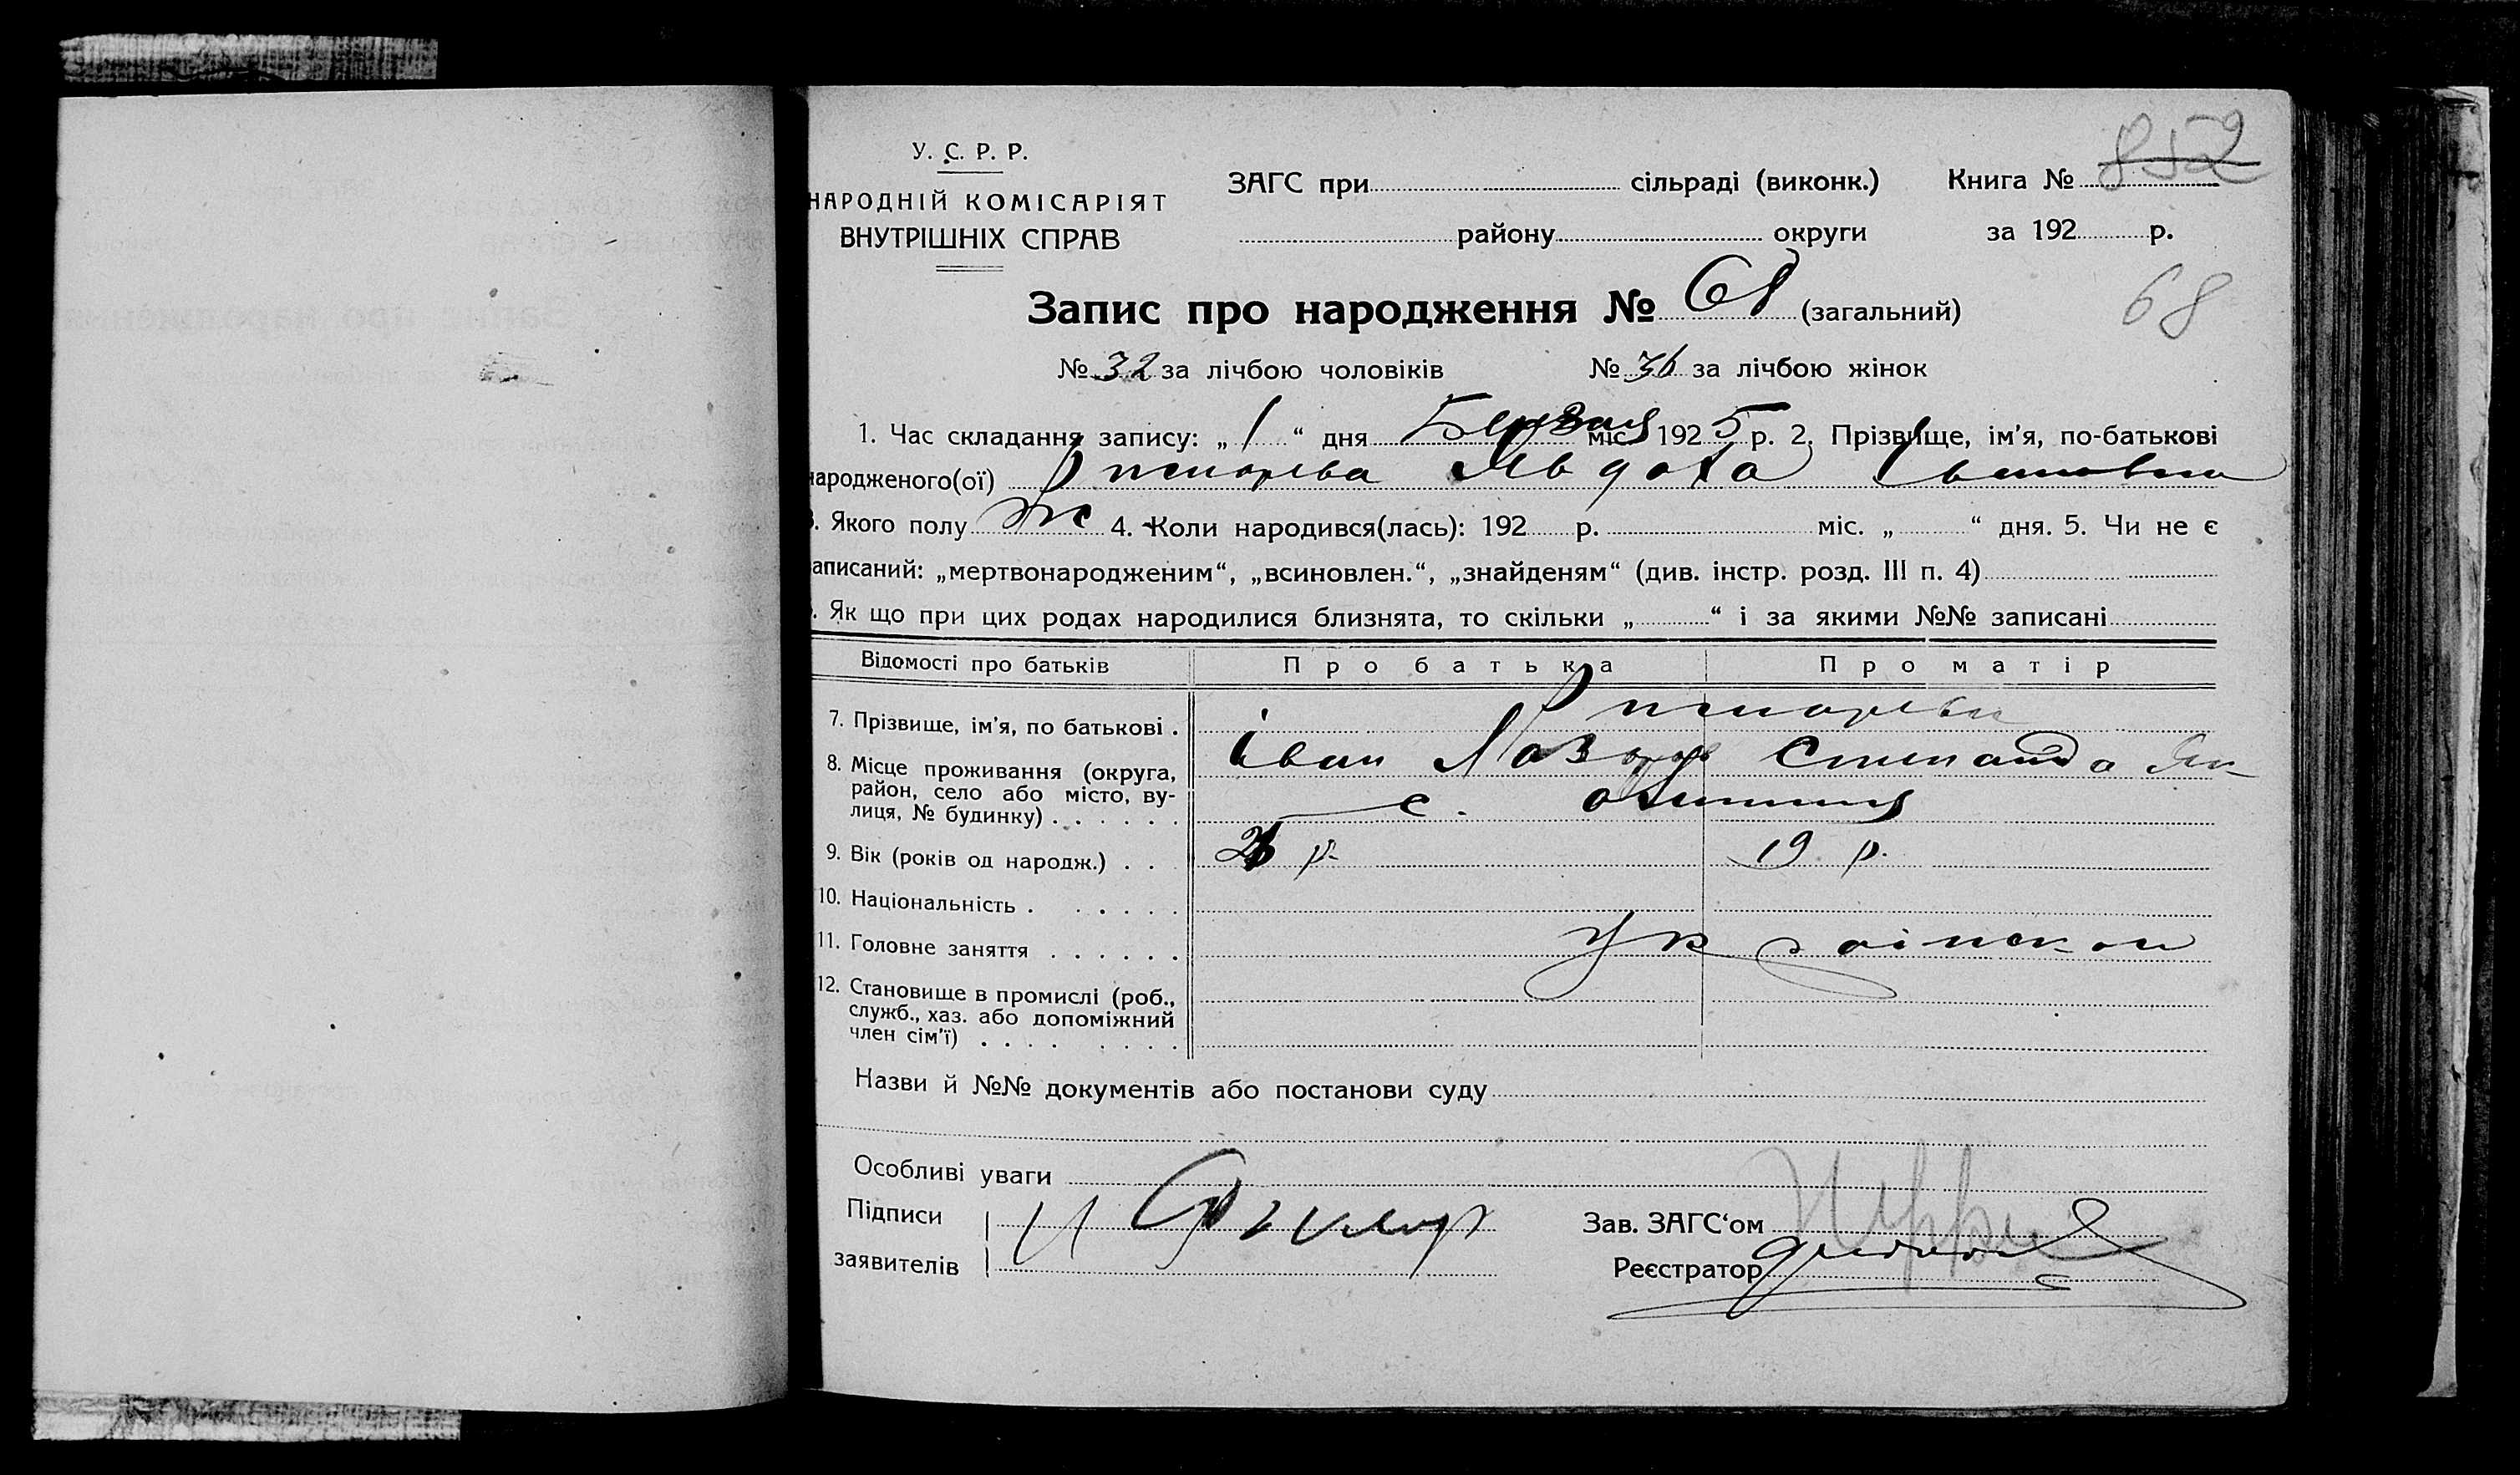 852
У. С. Р. Р.
НАРОДНІЙ КОМІСАРІЯТ
ВНУТРІШНІХ СПРАВ
ЗАГС при сільраді (виконк.) Книга №
району округи за 192 р.
Запис про народження № 68 (загальний)
68
№ 32 за лічбою чоловіків № 36 за лічбою жінок
1. Час складання запису: „ 1 “ дня Березня міс. 192 5 р. 2. Прізвище, ім’я, по-батькові
народженого(ої) Явдоха Івановна
3. Якого полу ж 4. Коли народився(лась): 192 р. міс. „ “ дня. 5. Чи не є
записаний: „мертвонародженим“, „всиновлен.“, „знайденям“ (див. інстр. розд. III п. 4)
6. Як що при цих родах народилися близнята, то скільки „ “ і за якими №№ записані
Відомості про батьків Про батька Про матір
7. Прізвище, ім’я, по батькові .
Іван Степанида Як
8. Місце проживання (округа,
район, село або місто, ву-
лиця, № будинку) . . . . . . с.
9. Вік (років од народж.) . . р. 19 р.
10. Національність . . . . . .
11. Головне заняття . . . . . .
12. Становище в промислі (роб.,
служб., хаз. або допоміжний
член сім’ї) . . . . . . . .
Назви й №№ документів або постанови суду
Особливі уваги
Підписи
заявителів
Зав. ЗАГС‘ом
Реєстратор